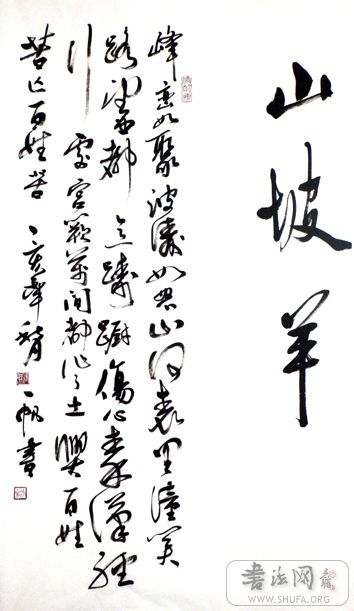 山坡羊
峰峦如聚波涛如怒山河表里潼关
路望西都意踌蹰傷心秦漢經
行處宫闕萬间都作了土興百姓
苦亡百姓苦丁亥
一帆書
书法网
WWW.SHUFA.ORG